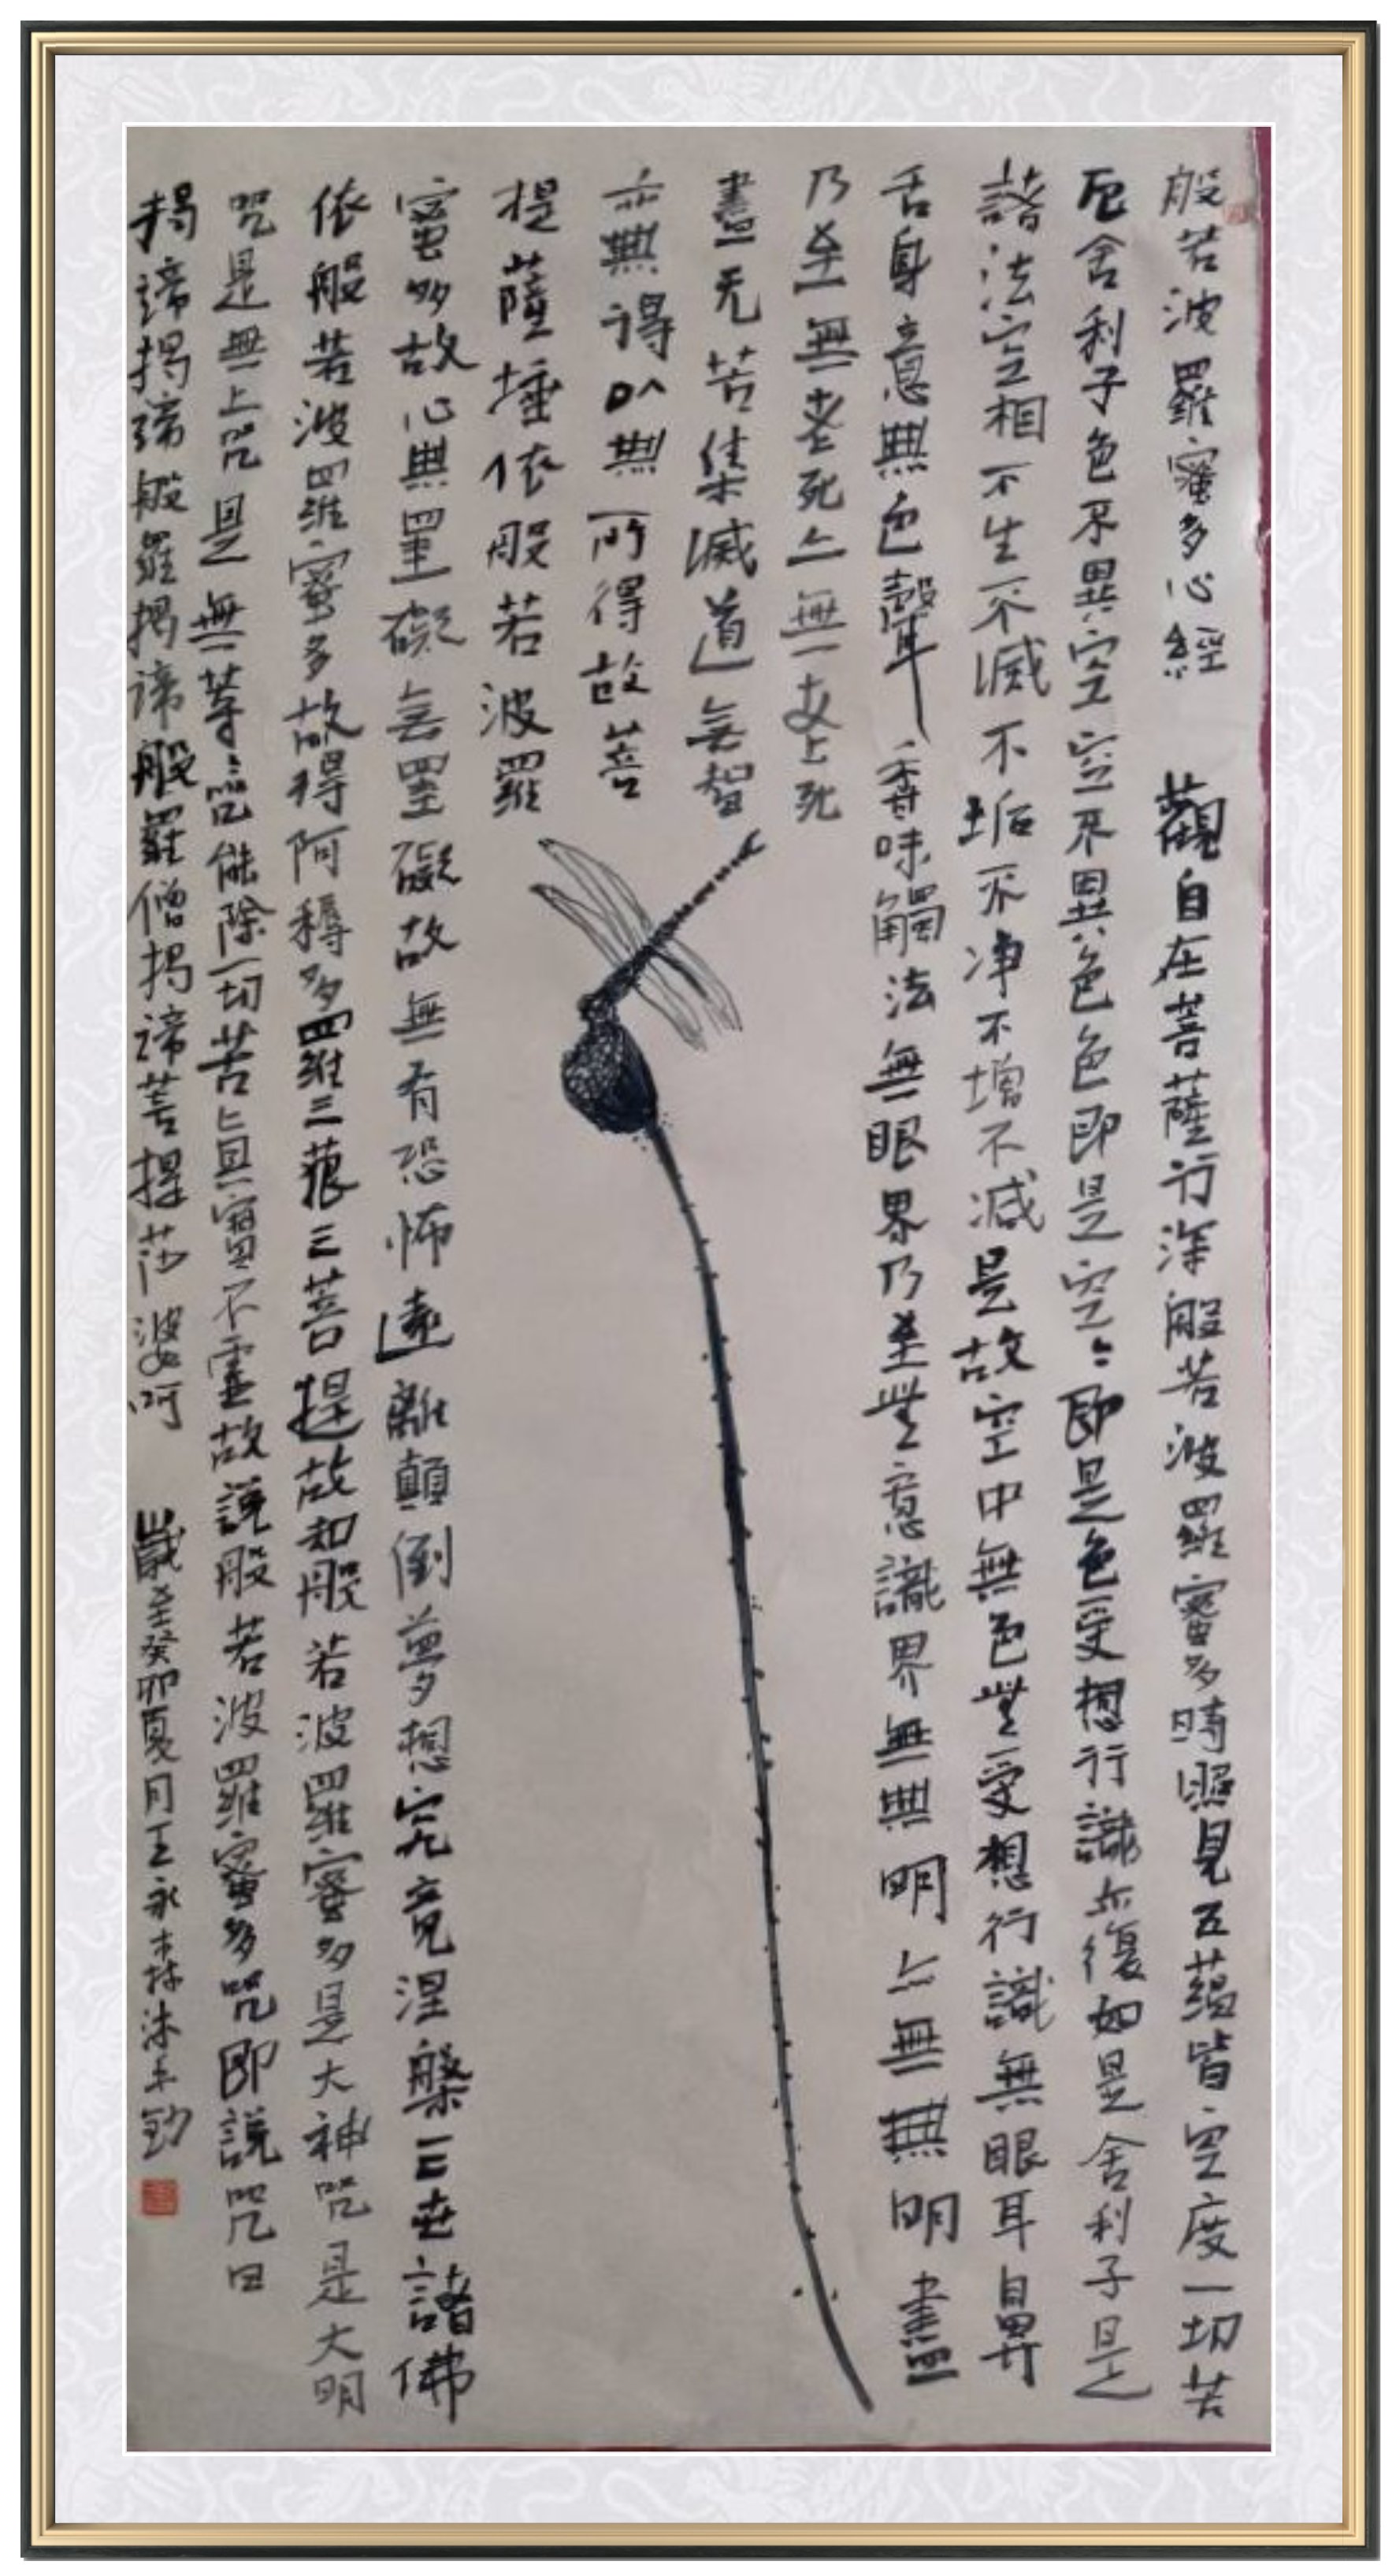 般若波羅蜜多心經 觀自在菩薩行深般若波羅蜜多時照見五蘊皆空度一切苦
厄舍利子色不異空空不異色色即是空〻即是色受想行識亦復如是舍利子是
諸法空相不生不滅不垢不净不增不減是故空中無色無受想行識無眼耳鼻
舌身意無色聲香味觸法無眼界乃至無意識界無無明亦無無明盡
乃至無老死亦無老死
盡无苦集滅道無智
亦無得以無所得故菩
提薩埵依般若波羅
蜜多故心無罣礙無罣礙故無有恐怖遠離顛倒夢想究竟涅槃三世諸佛
依般若波羅蜜多故得阿耨多羅三藐三菩提故知般若波羅蜜多是大神咒是大明
咒是無上咒是無等〻咒能除一切苦真實不虛故說般若波羅蜜多咒即說咒曰
揭諦揭諦般羅揭諦般羅僧揭諦菩提莎婆呵 歲至癸卯夏月王永森沐手鈔